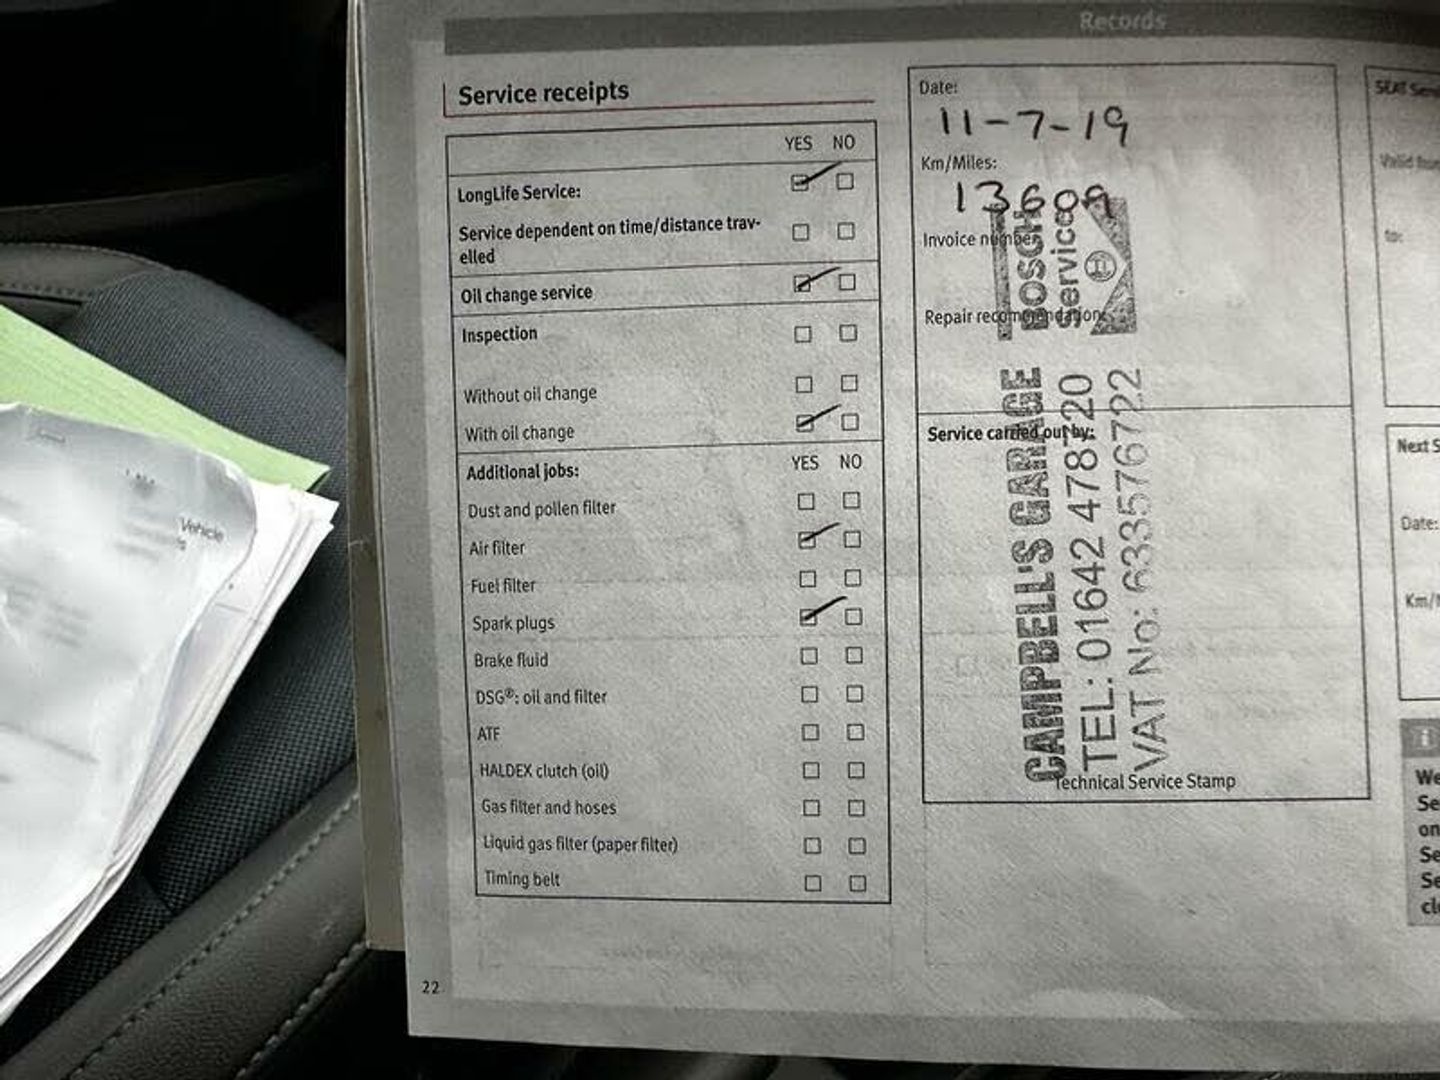 Records
Service receipts
YES NO
LongLife Service:
Service dependent on time/distance trav-
elled
Oil change service
Inspection
Without oil change
With oil change
Additional jobs:
YES NO
Dust and pollen filter
Air filter
Fuel filter
Spark plugs
Brake fluid
DSG®: oil and filter
ATF
HALDEX clutch (oil)
Gas filter and hoses
Liquid gas filter (paper filter)
Timing belt
22
Date:
11-7-19
Km/Miles:
13609
Invoice number
Repair recommendation
Service carried out by:
BOSCH
Service
CAMPBELL'S GARAGE
TEL: 01642 478720
VAT No: 633576722
Technical Service Stamp
SEAT
Valid
to:
Next S
Date:
Km/
We
Se
on
Se
Se
cl
Vehicle